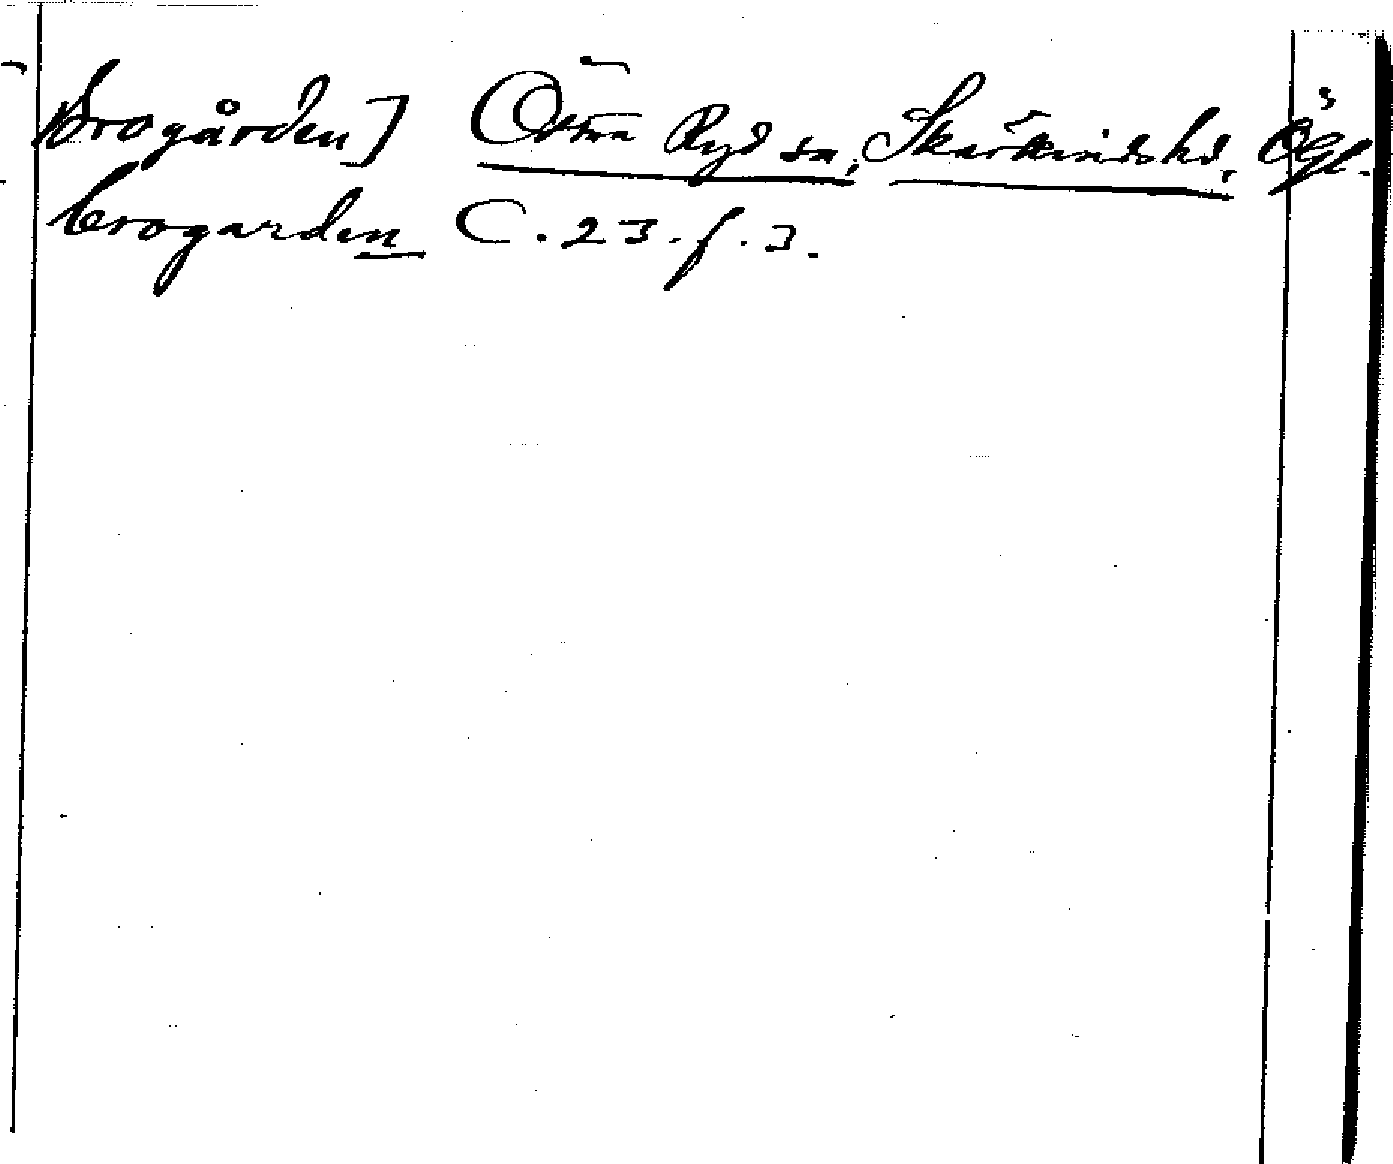 Brogården] Östra Ryd sn, Skärkinds hd, Ögl.
brogarden C. 23. f. 3.